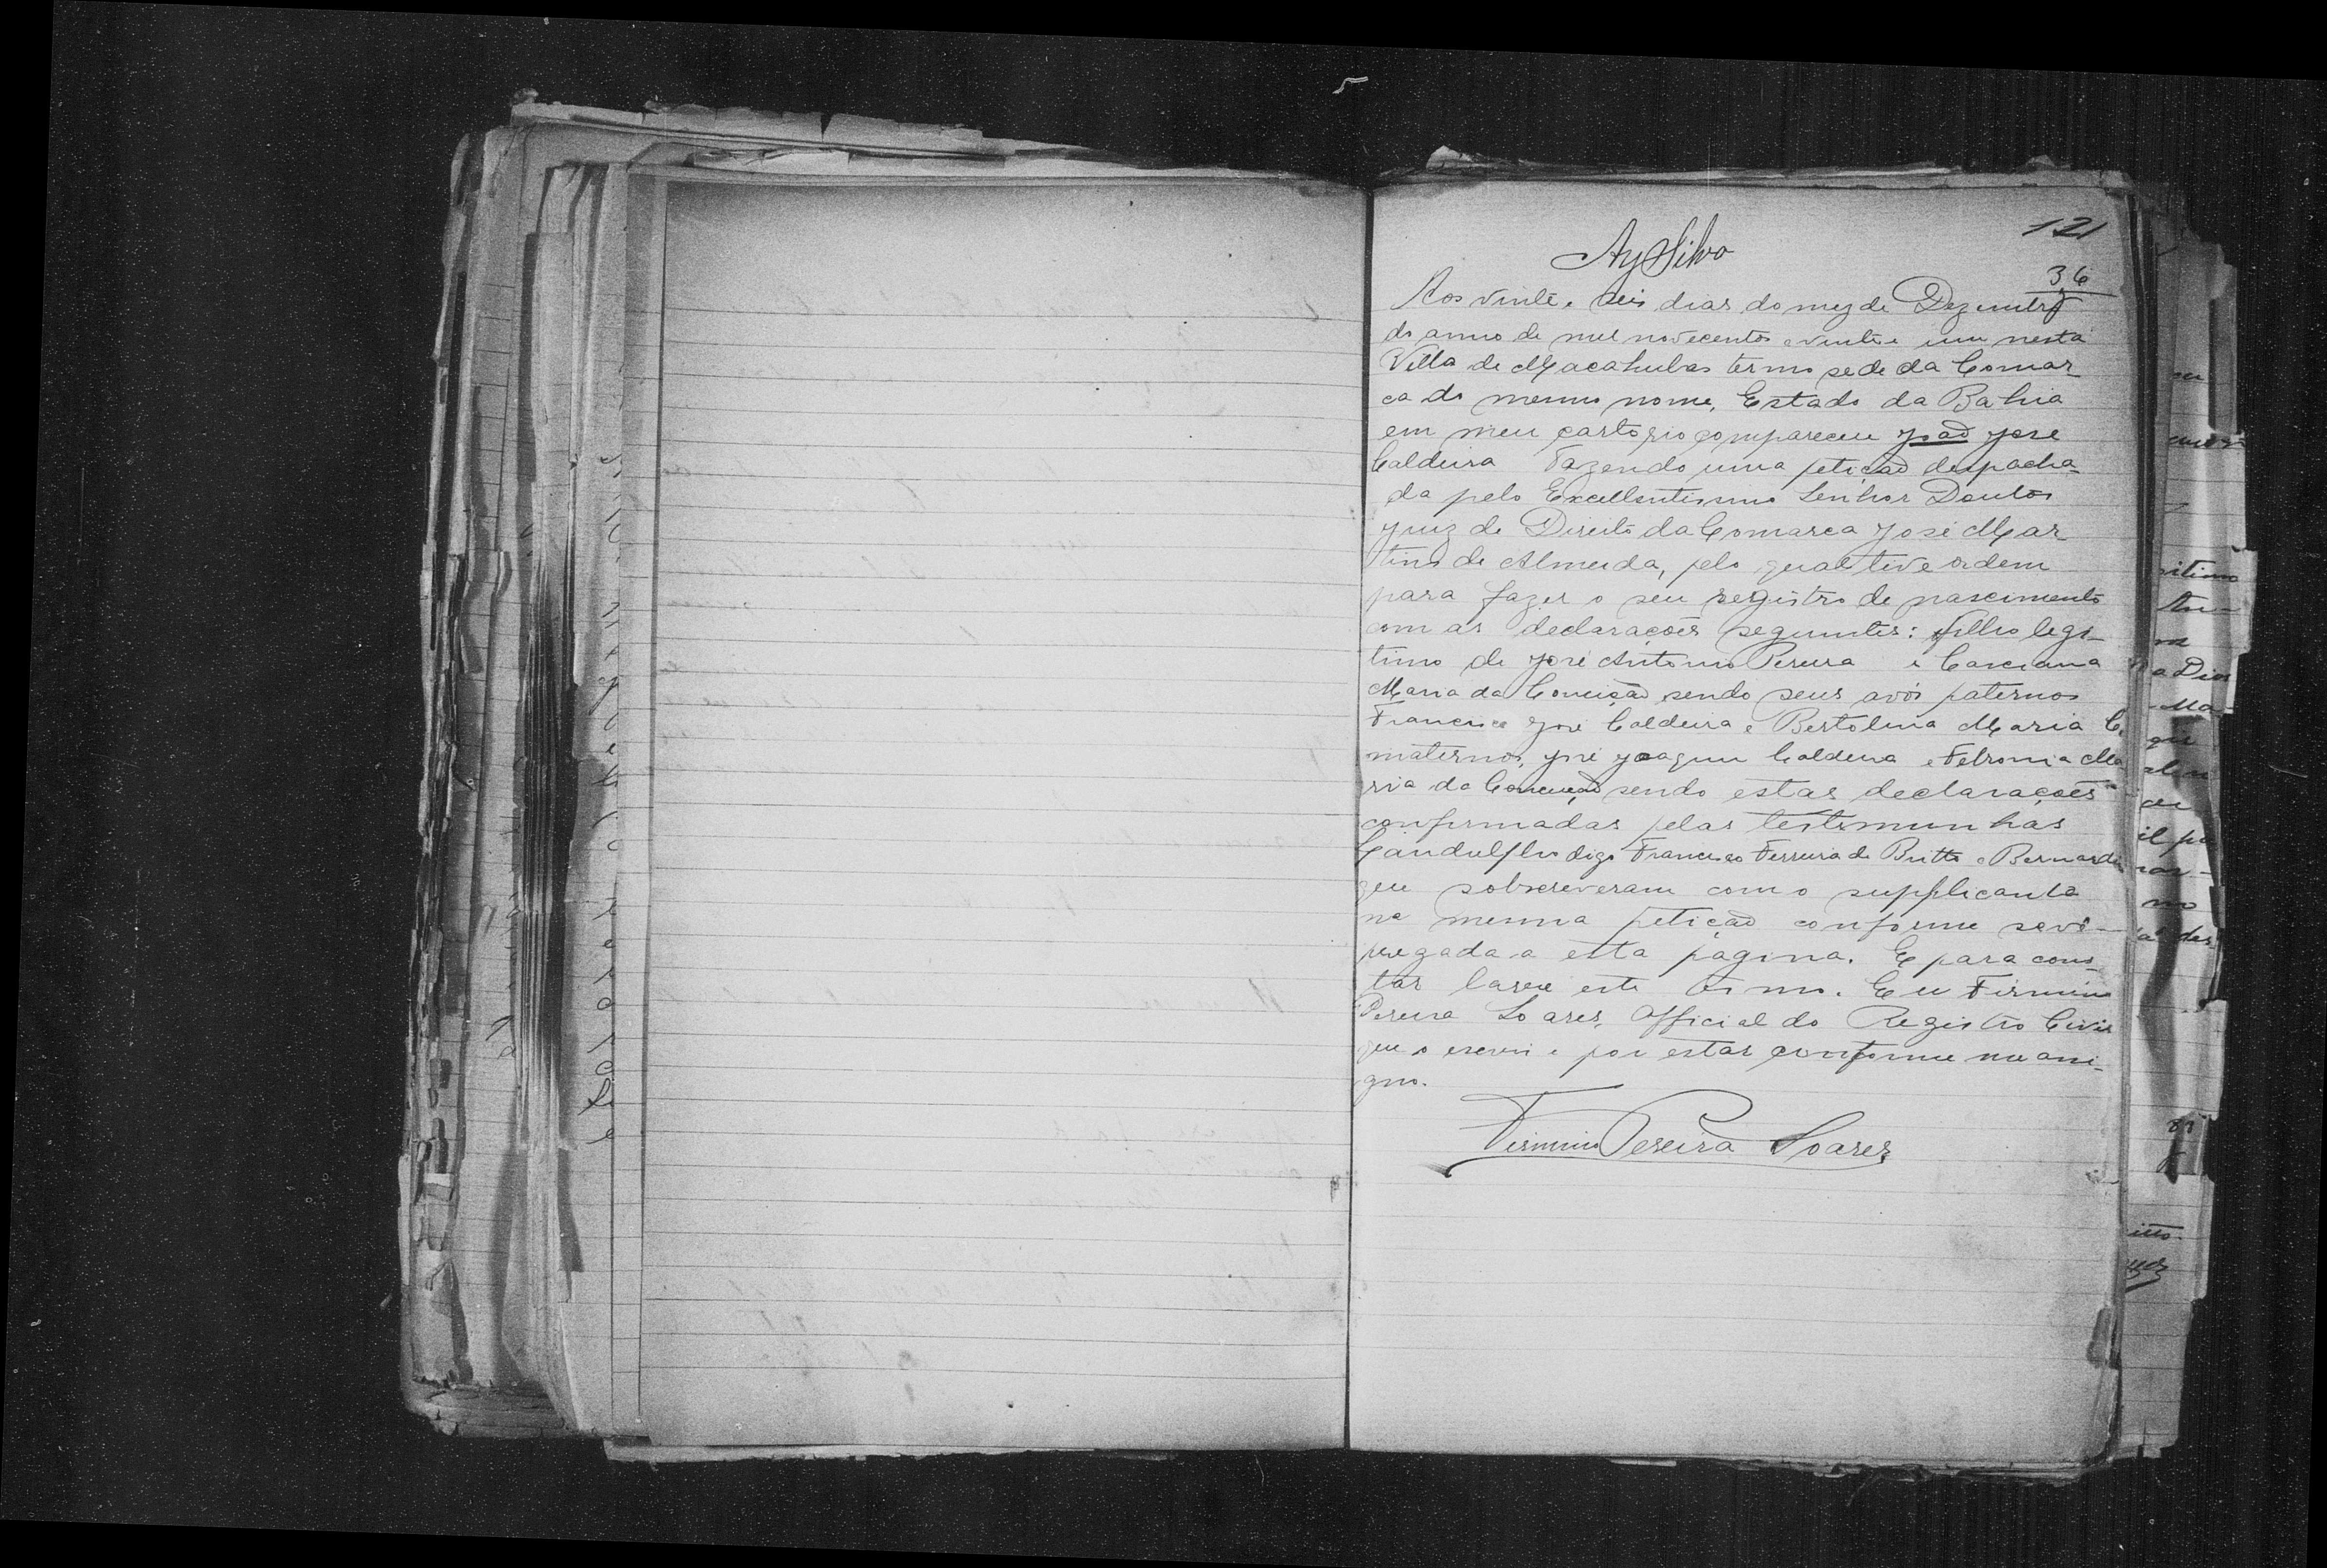 121
Ay Silva
36
Aos vinte e seis dias do mez de Dezembro
do anno de mil novecentos e vinte e um nesta
Villa de Macahubas termo sede da Comar_
ca do mesmo nome, Estado da Bahia
em meu cartorio compareceu João José
Caldeira Fazendo uma petição despacha_
da pelo Excellentissimo Senhor Doutor
Juiz de Direito da Comarca José Mar_
tins de Almeida, pelo qual tive ordem
para fazer o seu registro de nascimento
com as declarações seguintes: filho legi_
timo de José Antonio Pereira e Casciana
Maria da Conceição sendo seus avós paternos
Francisco José Caldeira e Bertolina Maria C.
maternos, José Joaquim Caldeira e Petronia Ma
ria da Conceição sendo estas declarações
confirmadas pelas testimunhas
digo Francisco Ferreira de Britto e Bernardin
que sobscreveram com o supplicante
na mesma petição conforme se vê
pregada a esta pagina. E para cons_
tar lavrei este termo. Eu Firmino
Pereira Soares, Official do Registro Civil
que o escrevi e por estar conforme me assi_
gno.
Firmino Pereira Soares